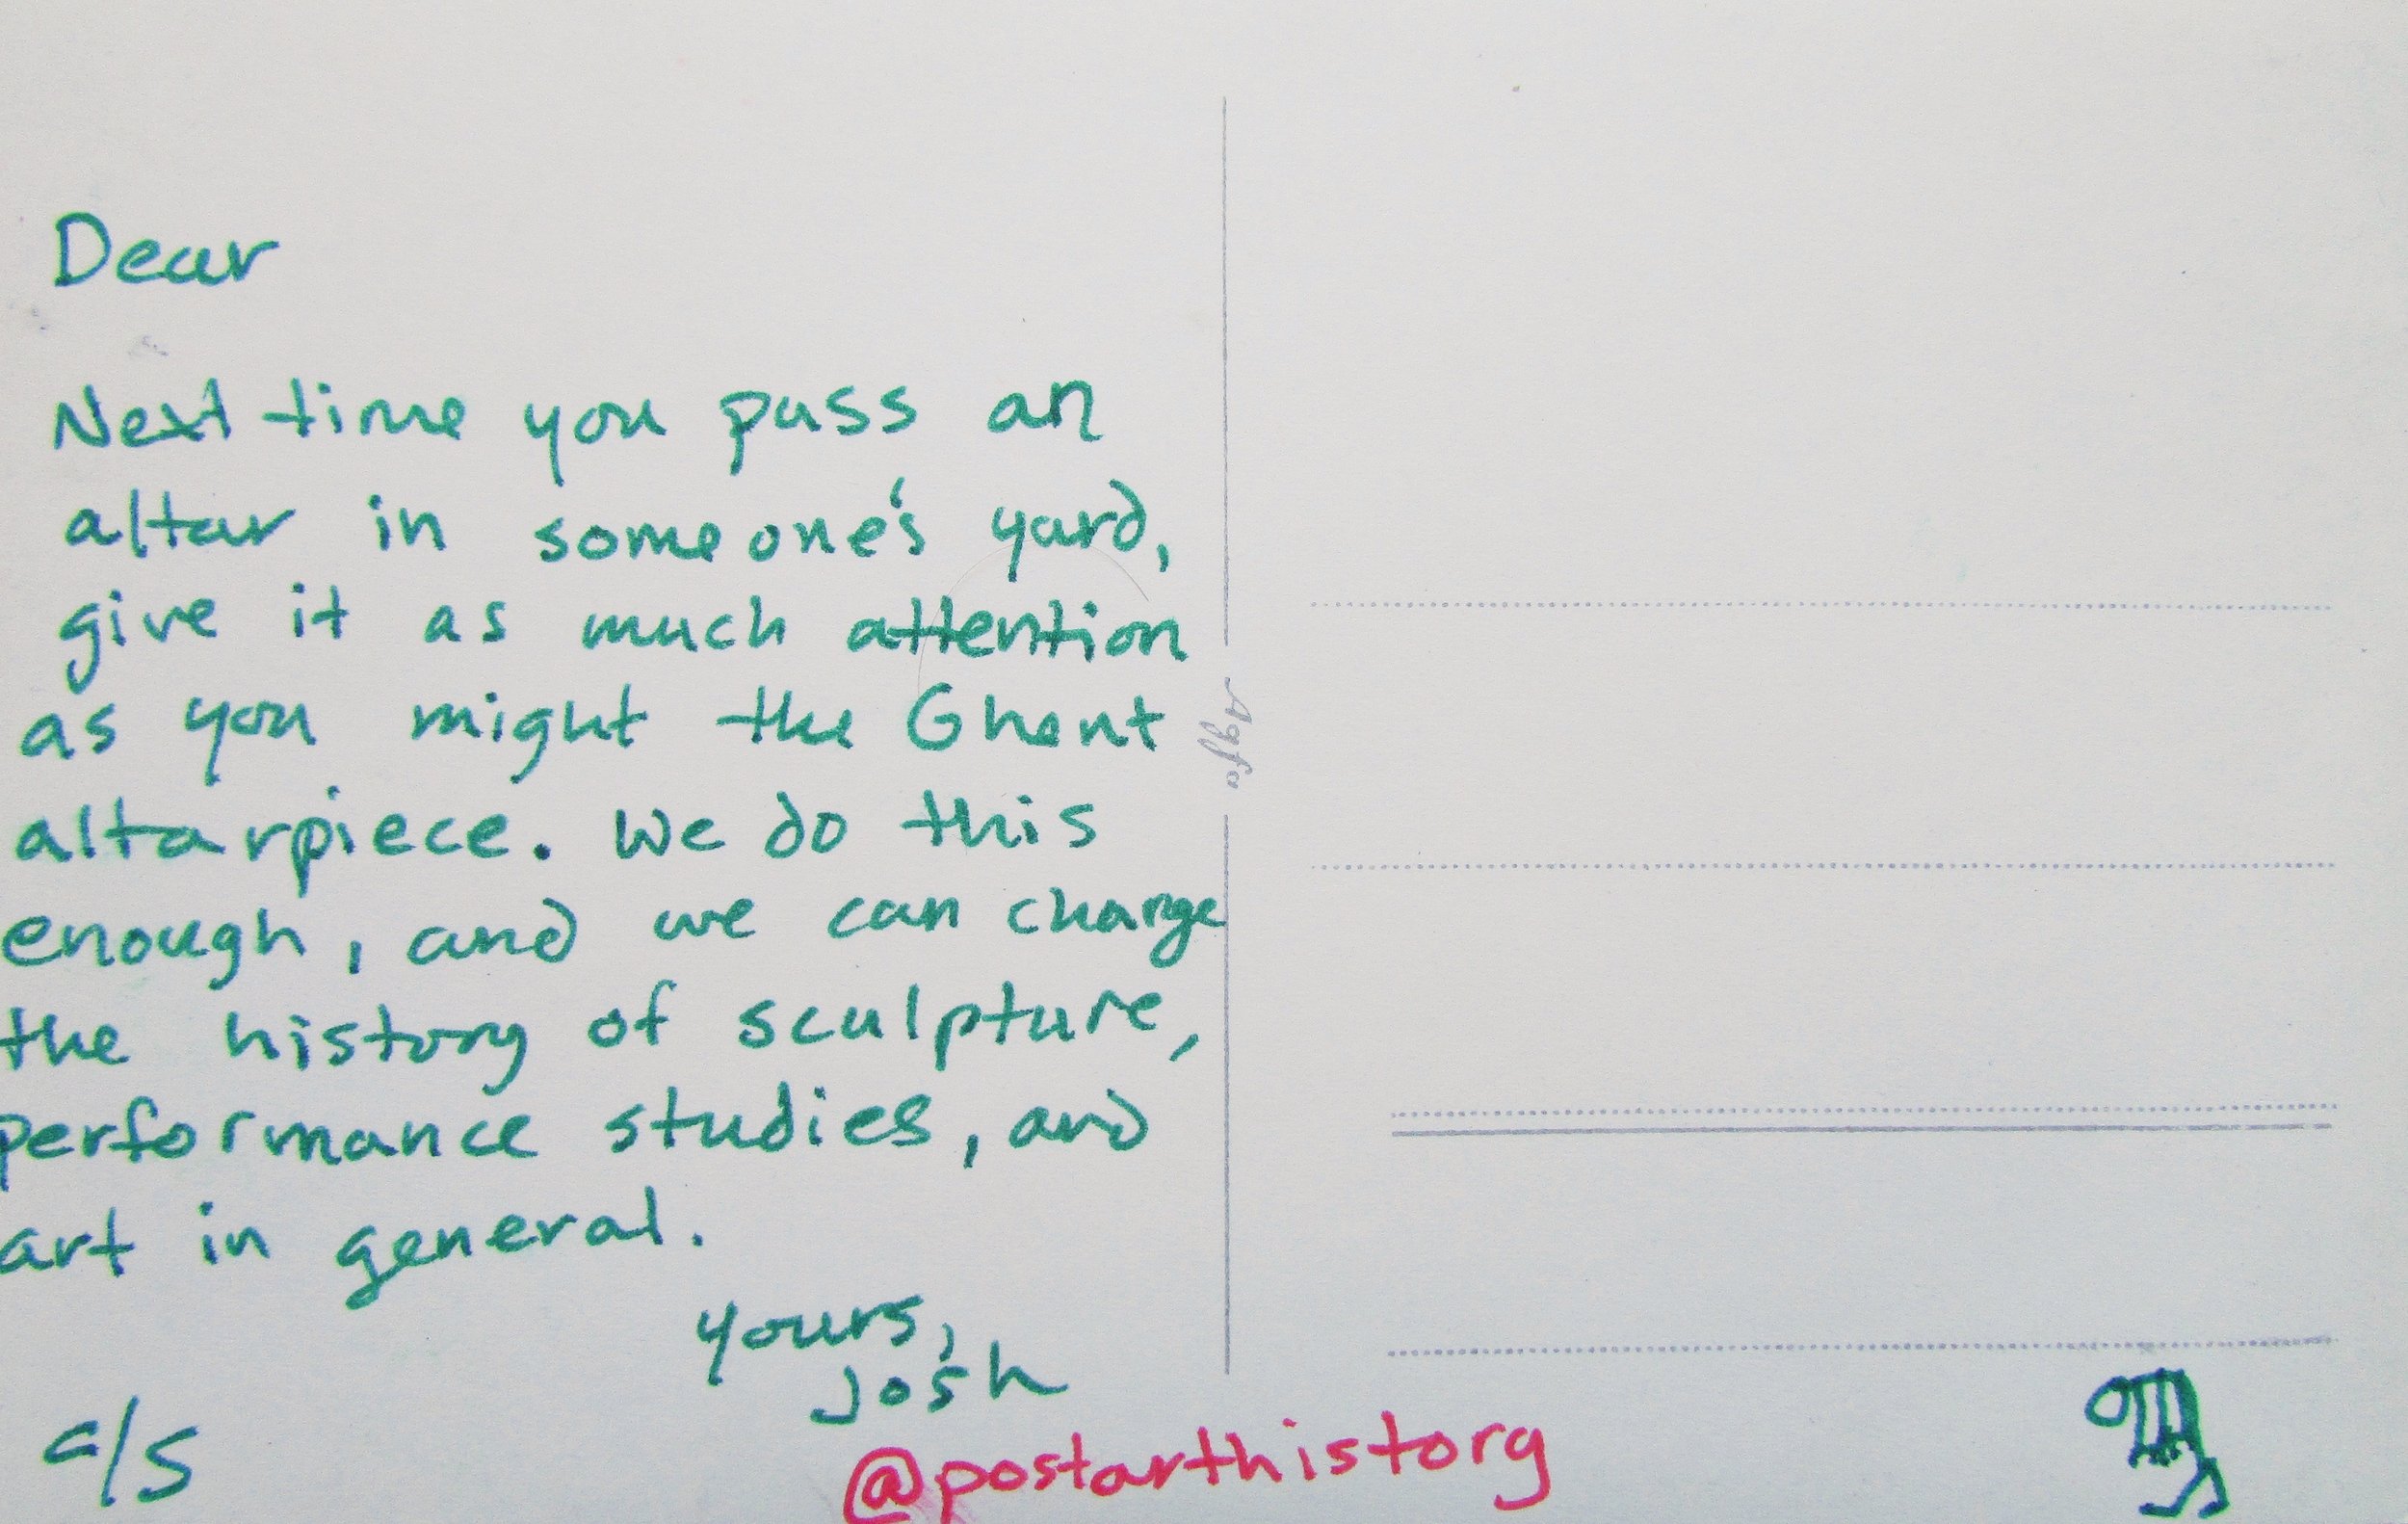 Dear
Next time you pass an
altar in someone's yard,
give it as much attention
as you might the Ghent
altarpiece. We do this
enough, and we can change
the history of sculpture,
performance studies, and
art in general.
yours,
Josh
c/s
@postarthistory
Agfa